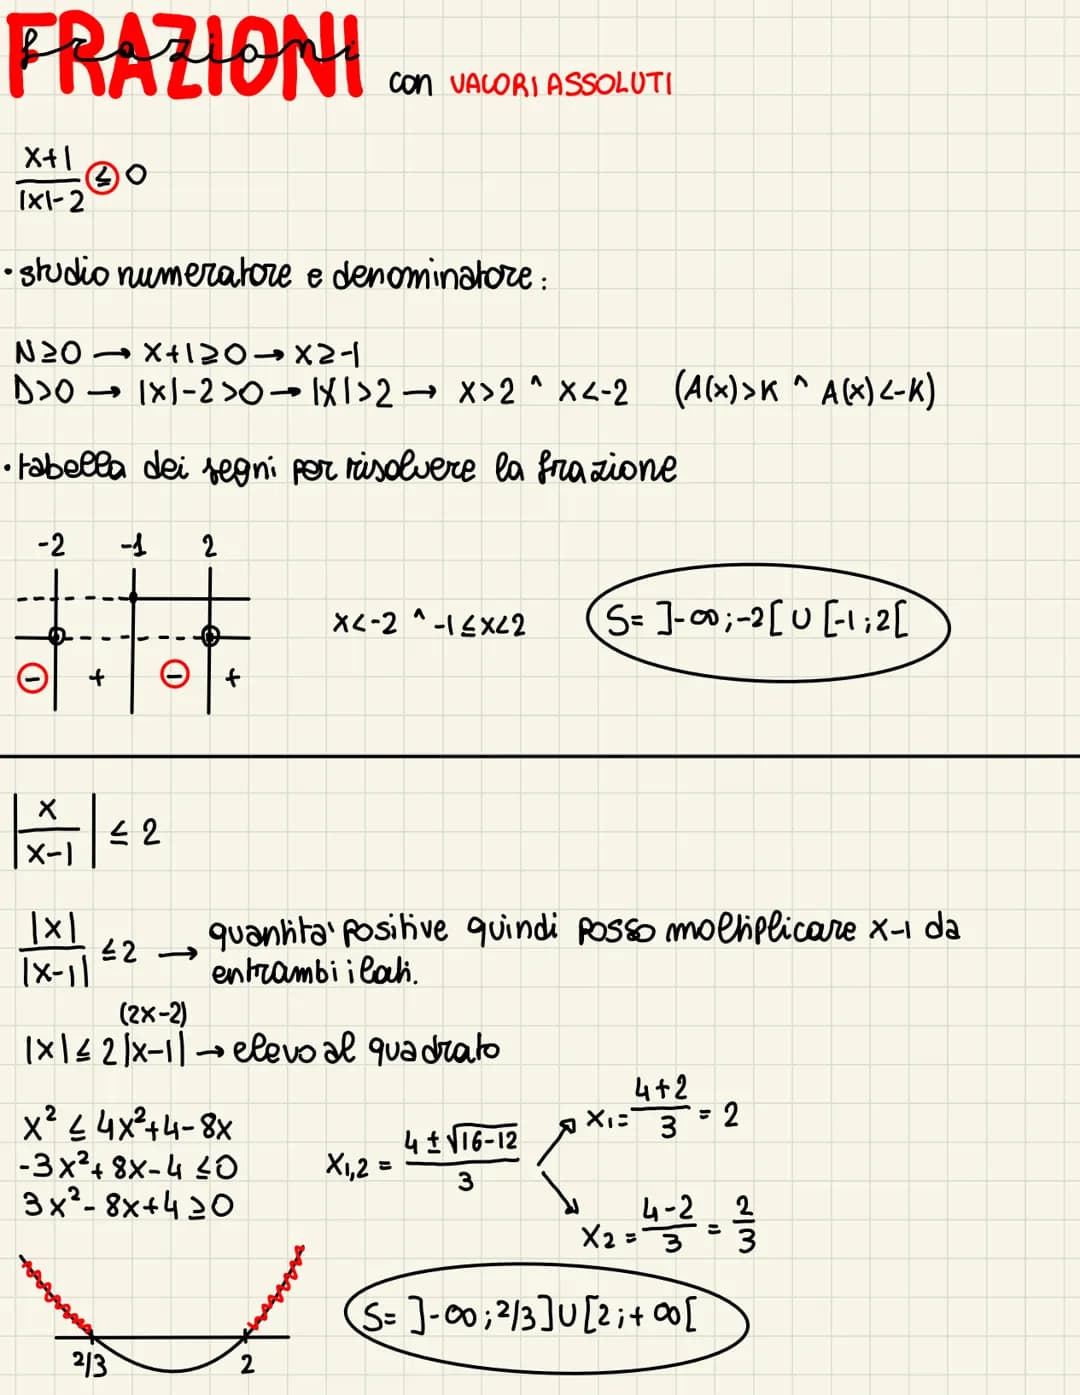 FRAZIONI
frazioni
con VALORI ASSOLUTI
x+1
|x|-2
≤ 0
• studio numeratore e denominatore:
N≥0 → x+1≥0 → x≥-1
D>0 → |x|-2>0 → |x|>2 → x>2 ^ x<-2 (A(x)>K ^ A(x)<-K)
• tabella dei segni per risolvere la frazione
-2 -1 2
x<-2 ^ -1≤x<2
S= ]-∞;-2[ U [-1;2[
- + - +
|x/x-1| ≤ 2
|x|/|x-1| ≤2 → quantita' positive quindi posso moltiplicare x-1 da
entrambi i lati.
(2x-2)
|x|≤ 2|x-1| → elevo al quadrato
x² ≤ 4x²+4-8x
-3x²+8x-4 ≤0
3x²-8x+4 ≥0
x1,2 = 4±√16-12 / 3
x1= 4+2 / 3 = 2
x2= 4-2 / 3 = 2/3
S= ]-∞;2/3] U [2;+∞[
2/3 2